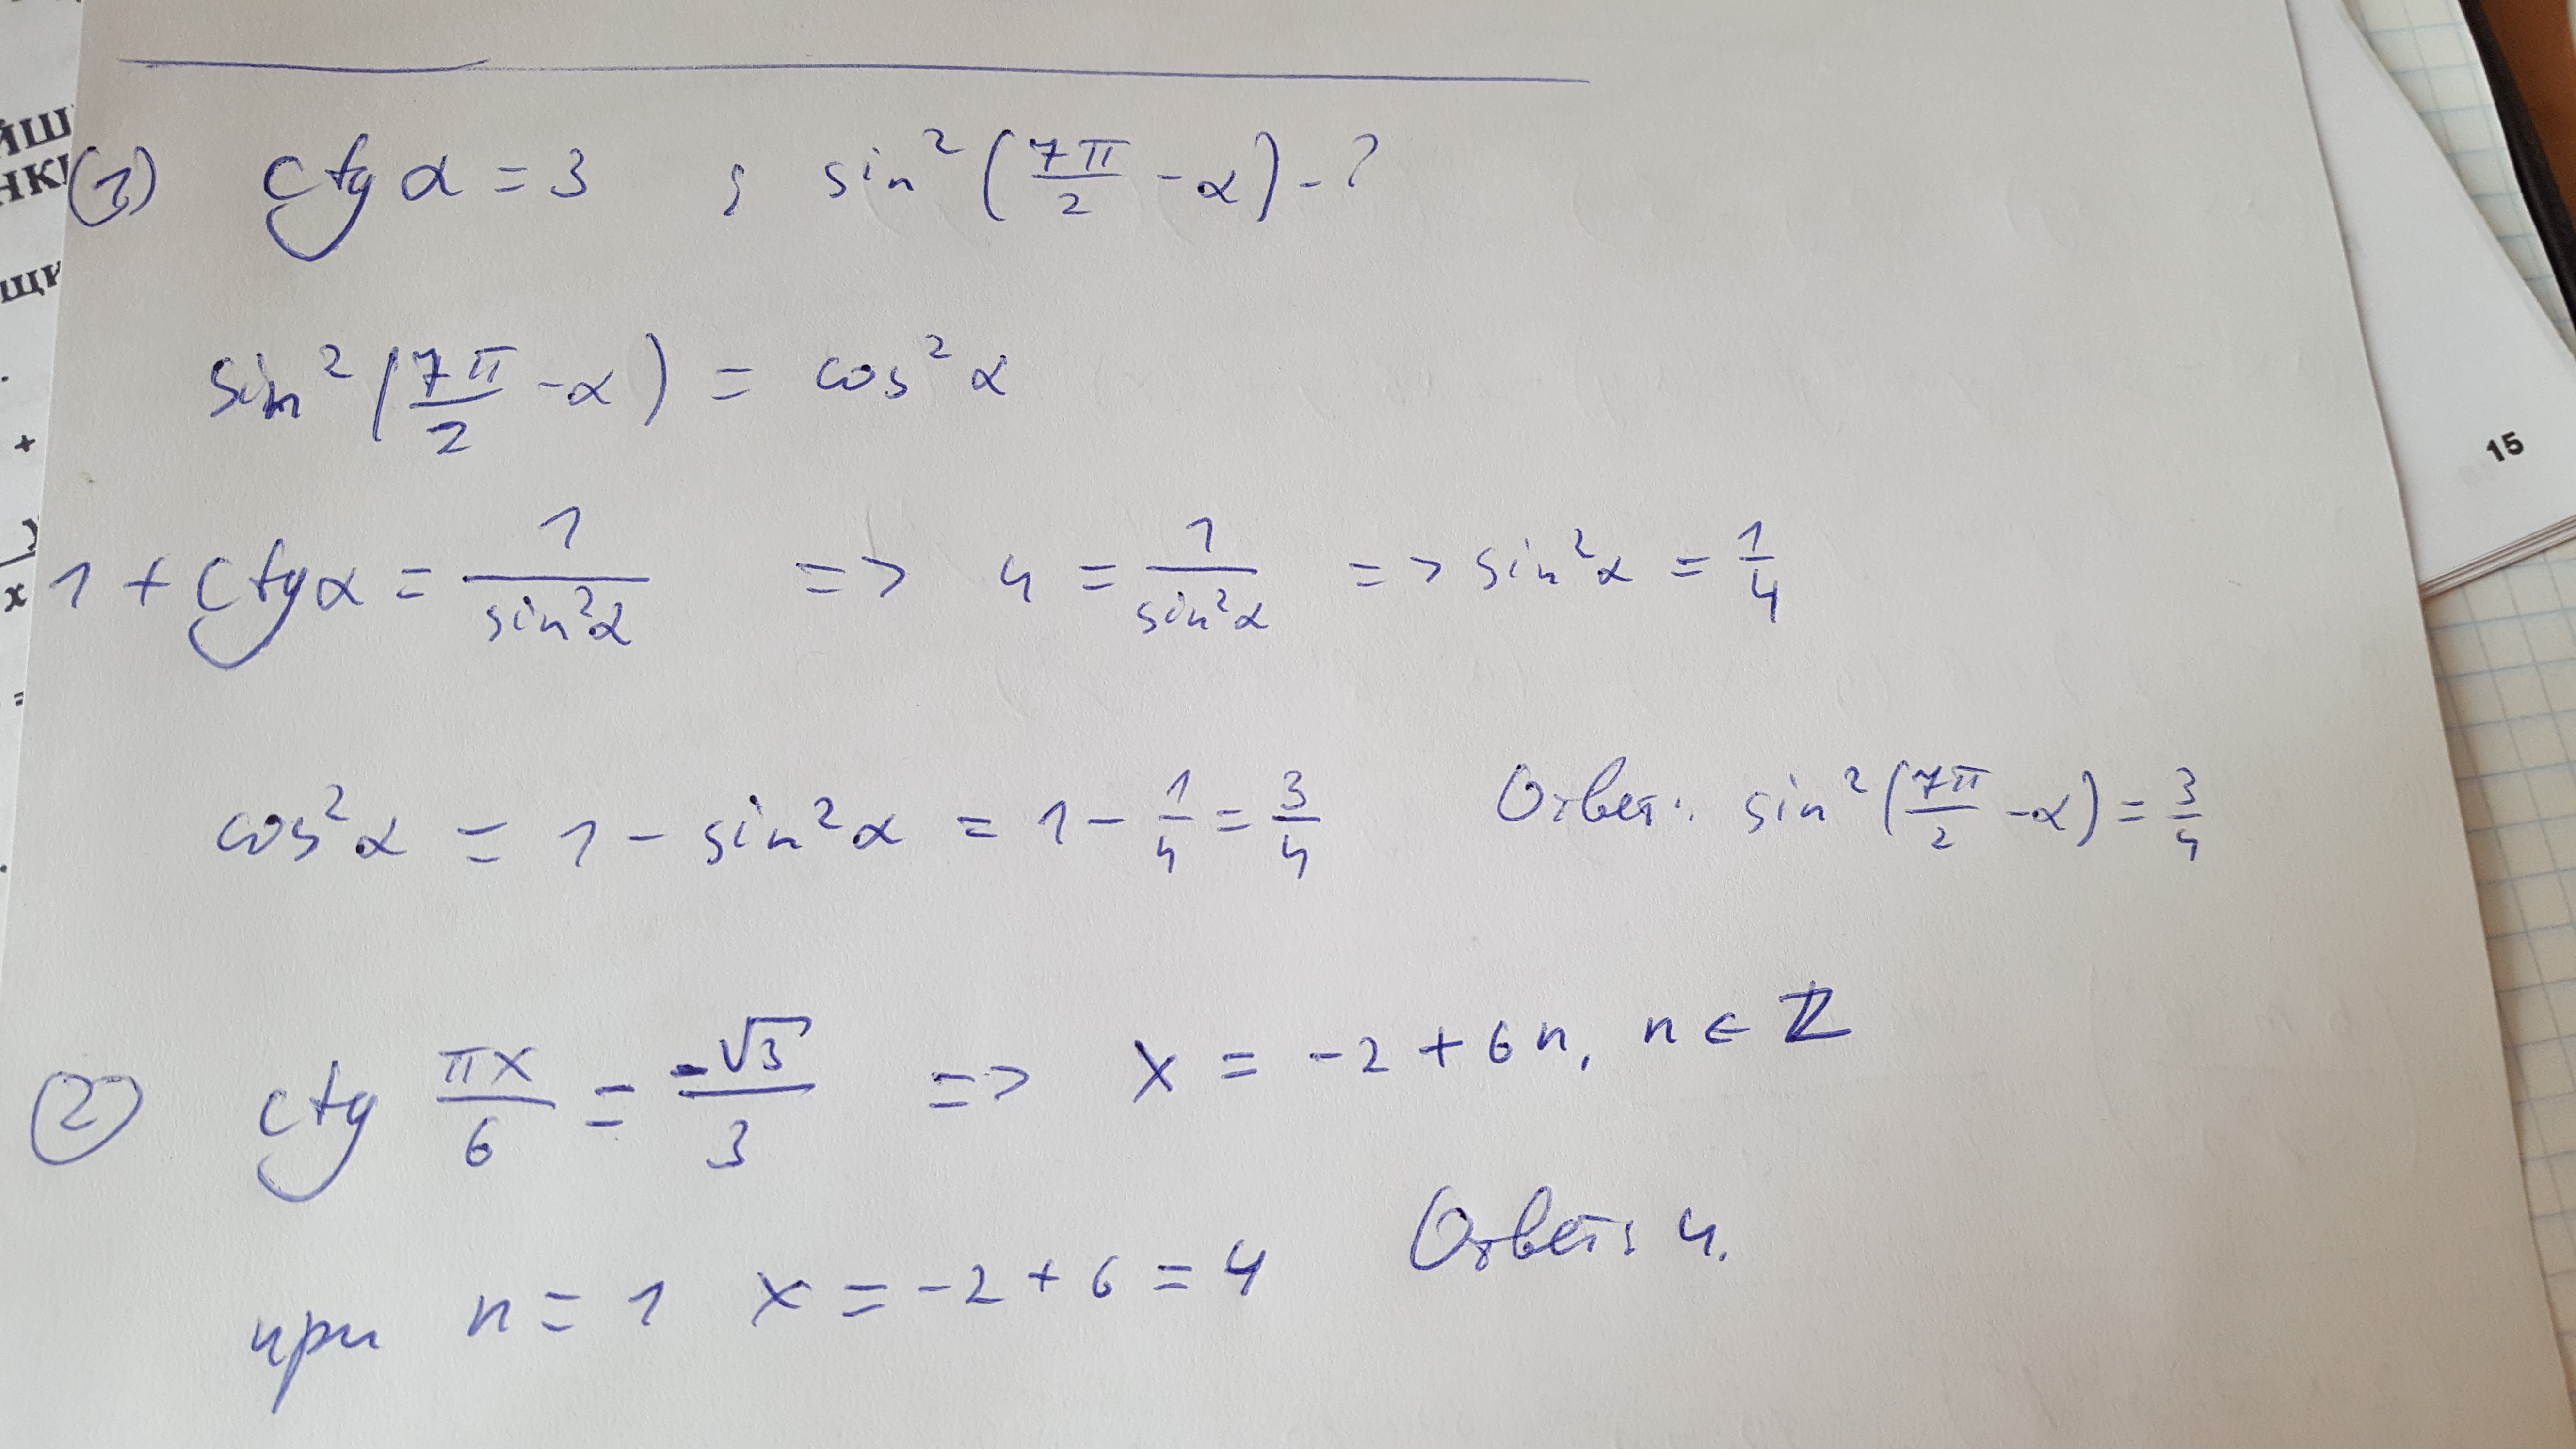 ① ctg α = 3 ; sin² (7π/2 - α) - ?
sin² (7π/2 - α) = cos² α
1 + ctg α = 1/sin²α => 4 = 1/sin²α => sin²α = 1/4
cos²α = 1 - sin²α = 1 - 1/4 = 3/4 Ответ: sin² (7π/2 - α) = 3/4
② ctg πx/6 = -√3/3 => x = -2 + 6n, n ∈ ℤ
при n = 1 x = -2 + 6 = 4 Ответ: 4.
15